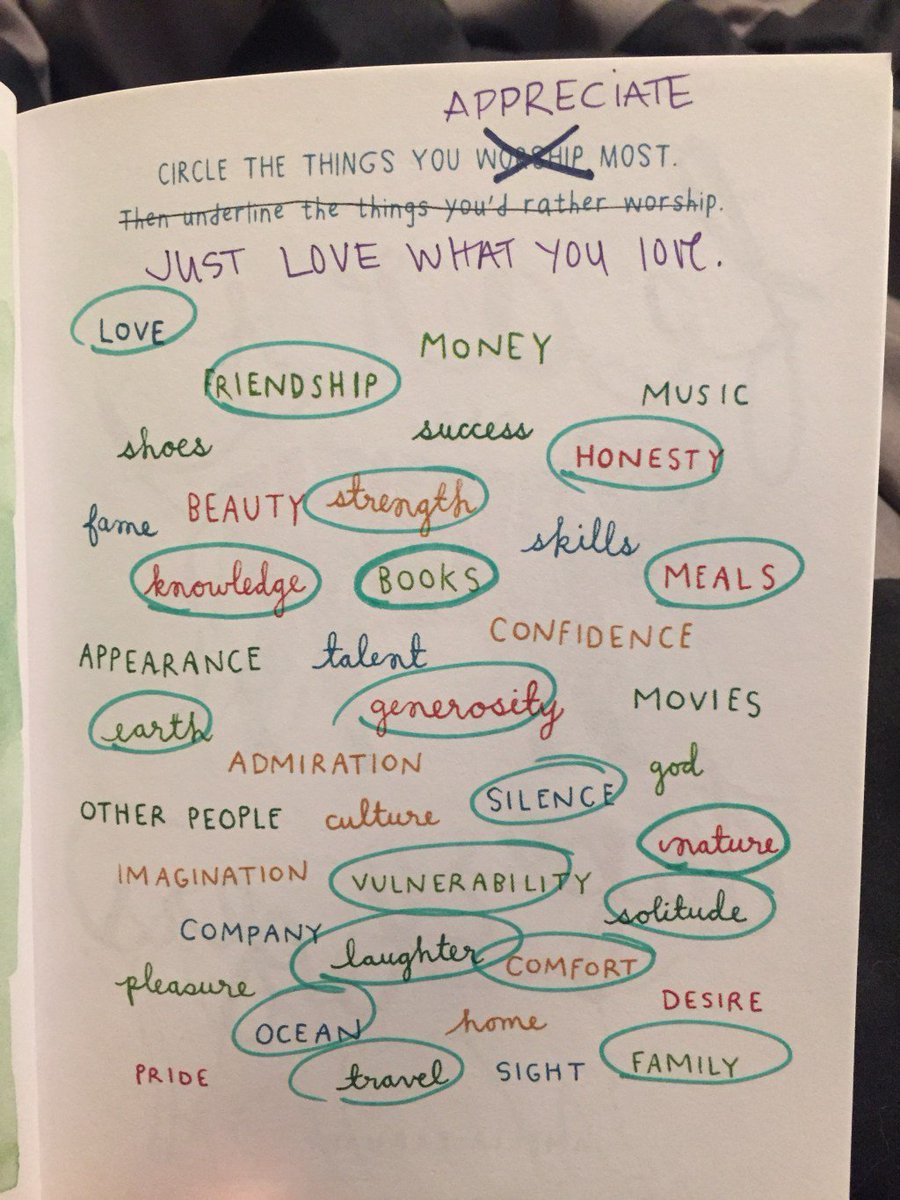 APPRECIATE
CIRCLE THE THINGS YOU WORSHIP MOST.
Then underline the things you'd rather worship.
JUST LOVE WHAT YOU lOVE.
LOVE
MONEY
FRIENDSHIP
MUSIC
shoes
success
HONESTY
fame
BEAUTY
strength
skills
knowledge
BOOKS
MEALS
APPEARANCE
talent
CONFIDENCE
earth
generosity
MOVIES
ADMIRATION
god
OTHER PEOPLE
culture
SILENCE
nature
IMAGINATION
VULNERABILITY
solitude
COMPANY
laughter
COMFORT
pleasure
DESIRE
OCEAN
home
PRIDE
travel
SIGHT
FAMILY